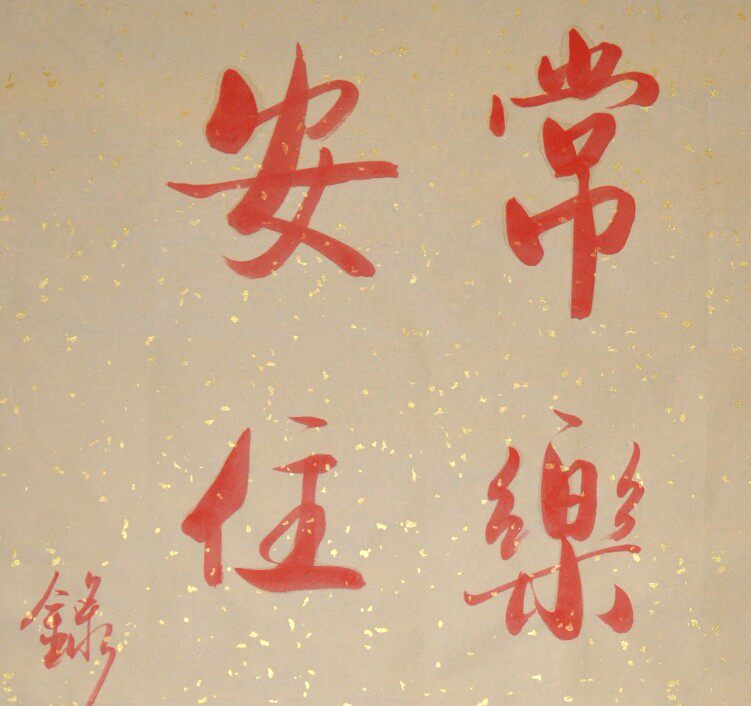 常樂
安住
錄